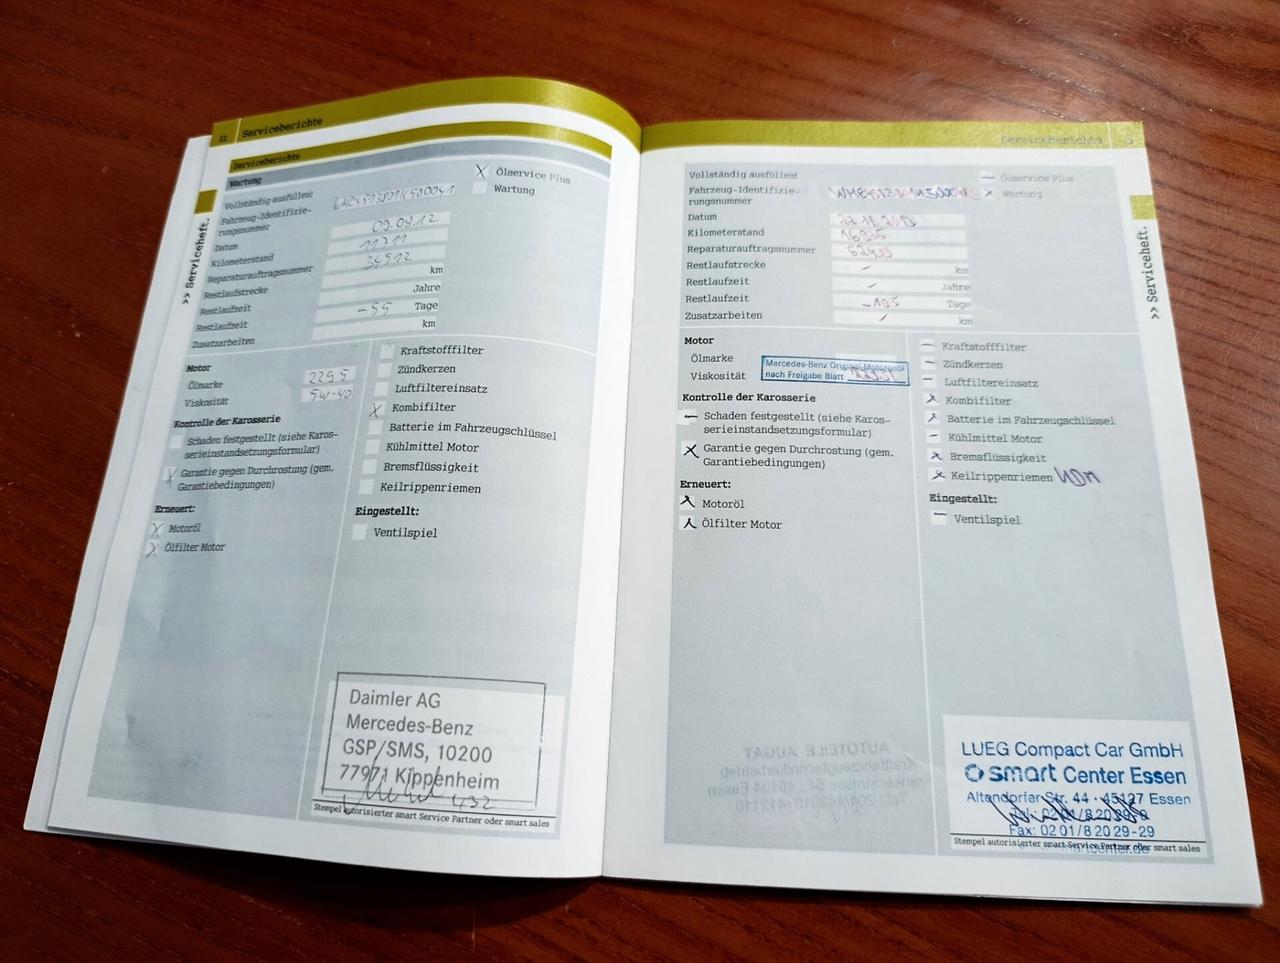 12 Serviceberichte
Serviceberichte
Wartung
Vollständig ausfüllen!
Fahrzeug-Identifizie-
rungsnummer
Datum 09.09.12
Kilometerstand 11711
Reparaturauftragsnummer 34512
Restlaufstrecke km
Restlaufzeit Jahre
Restlaufzeit -55 Tage
Zusatzarbeiten km
X Ölservice Plus
Wartung
>> Serviceheft.
Motor
Ölmarke 229.5
Viskosität 5W-40
Kontrolle der Karosserie
Schaden festgestellt (siehe Karos-
serieinstandsetzungsformular)
X Garantie gegen Durchrostung (gem.
Garantiebedingungen)
Erneuert:
X Motoröl
X Ölfilter Motor
Kraftstofffilter
Zündkerzen
Luftfiltereinsatz
X Kombifilter
Batterie im Fahrzeugschlüssel
Kühlmittel Motor
Bremsflüssigkeit
Keilrippenriemen
Eingestellt:
Ventilspiel
Daimler AG
Mercedes-Benz
GSP/SMS, 10200
77971 Kippenheim
432
Stempel autorisierter smart Service Partner oder smart sales
Serviceberichte
Vollständig ausfüllen!
Fahrzeug-Identifizie-
rungsnummer
Datum 22.11.2013
Kilometerstand
Reparaturauftragsnummer
Restlaufstrecke - km
Restlaufzeit - Jahre
Restlaufzeit -103 Tage
Zusatzarbeiten / km
- Ölservice Plus
x Wartung
>> Serviceheft.
Motor
Ölmarke
Viskosität
Mercedes-Benz Original-Motorenöl
nach Freigabe Blatt
Kontrolle der Karosserie
- Schaden festgestellt (siehe Karos-
serieinstandsetzungsformular)
X Garantie gegen Durchrostung (gem.
Garantiebedingungen)
Erneuert:
X Motoröl
X Ölfilter Motor
- Kraftstofffilter
- Zündkerzen
- Luftfiltereinsatz
X Kombifilter
X Batterie im Fahrzeugschlüssel
- Kühlmittel Motor
X Bremsflüssigkeit
X Keilrippenriemen
Eingestellt:
- Ventilspiel
AUTOTEILE AUGAT
LUEG Compact Car GmbH
smart Center Essen
Altendorfer Str. 44 · 45127 Essen
Fax: 02 01/8 20 29-29
Stempel autorisierter smart Service Partner oder smart sales